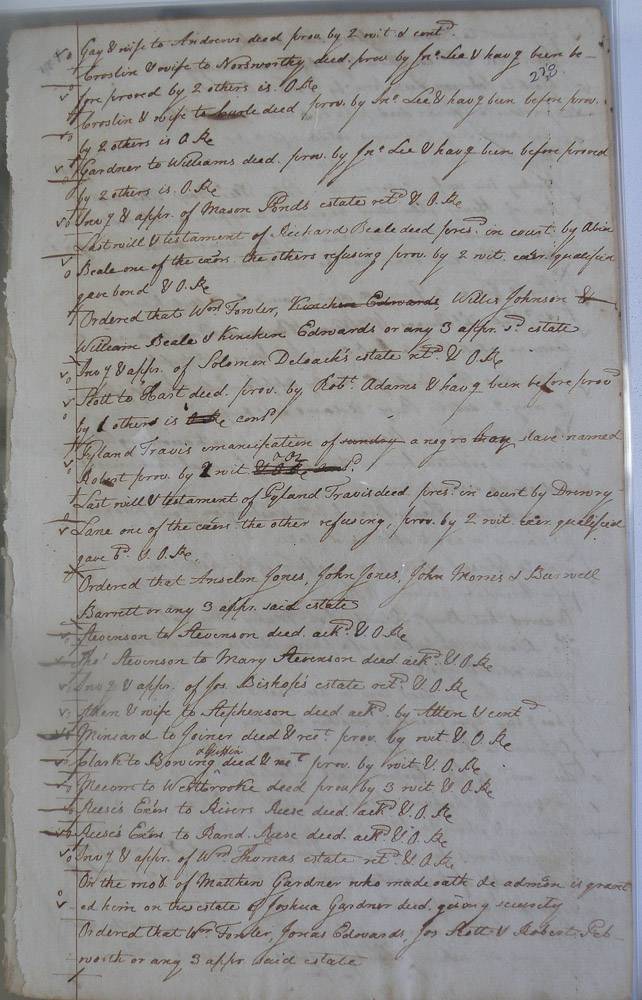 Gay & wife to Andrews deed prov. by 2 wit & contd.
Croslin & wife to Norsworthy deed prov. by Jno. Lee & havg been be-
273
fore proved by 2 others is. O.Re
Croslin & wife to deed prov. by Jno. Lee & havg been before prov.
by 2 others is O Re
Gardner to Williams deed. prov. by Jno. Lee & havg been before proved
by 2 others is. O.Re
Invy & appr. of Mason Ponds estate retd. & O.Re
Last will & testament of Richard Beale deed presd. in court by Abin
Beale one of the exõrs. the others refusing prov. by 2 wit. exõr. qualified
gave bond & O.Re
Ordered that Wm Fowler, Kinchen Edwards, Willis Johnson &
William Beale & Kinchen Edwards or any 3 appr. sd. estate
Invy & appr. of Solomon Deloach's estate retd. & O.Re
Stott to Hart deed. prov. by Robt. Adams & havg been before provd
by 1 others is O Re contd
Pyland Travis emancipation of sunday a negro slave named
Robert prov. by 2 wit & O.Re
Last will & testament of Pyland Travis deed. presd. in court by Drewry
Lane one of the exõrs. the other refusing, prov. by 2 wit. exõr. qualified
gave bd. & O.Re.
Ordered that Anselm Jones, John Jones, John Morris & Burwell
Barrett or any 3 appr. said estate
Stevenson to Stevenson deed. ackd. & O.Re
Thos. Stevenson to Mary Stevenson deed ackd. & O.Re
Invy & appr. of Jos. Bishop's estate retd. & O.Re
Allen & wife to Stephenson deed ackd. by Allen & contd
Miniard to Joiner deed & rect. prov. by wit & O.Re
Clark to Bowing deed & rect. prov. by wit & O.Re
Mecom to Westbrooke deed prov. by 3 wit & O.Re
Reese's Exõrs to Rivers Reese deed. ackd. & O.Re
Reese's Exõrs to Rand. Reese deed. ackd. & O.Re
Invy & appr. of Wm. Thomas estate retd. & O.Re
On the moõ. of Matthew Gardner who made oath &c admõn is grant
ed him on the estate of Joshua Gardner deed. giving security
Ordered that Wm. Fowler, Jonas Edwards, Jos Stott & Robert Peb
worth or any 3 appr said estate